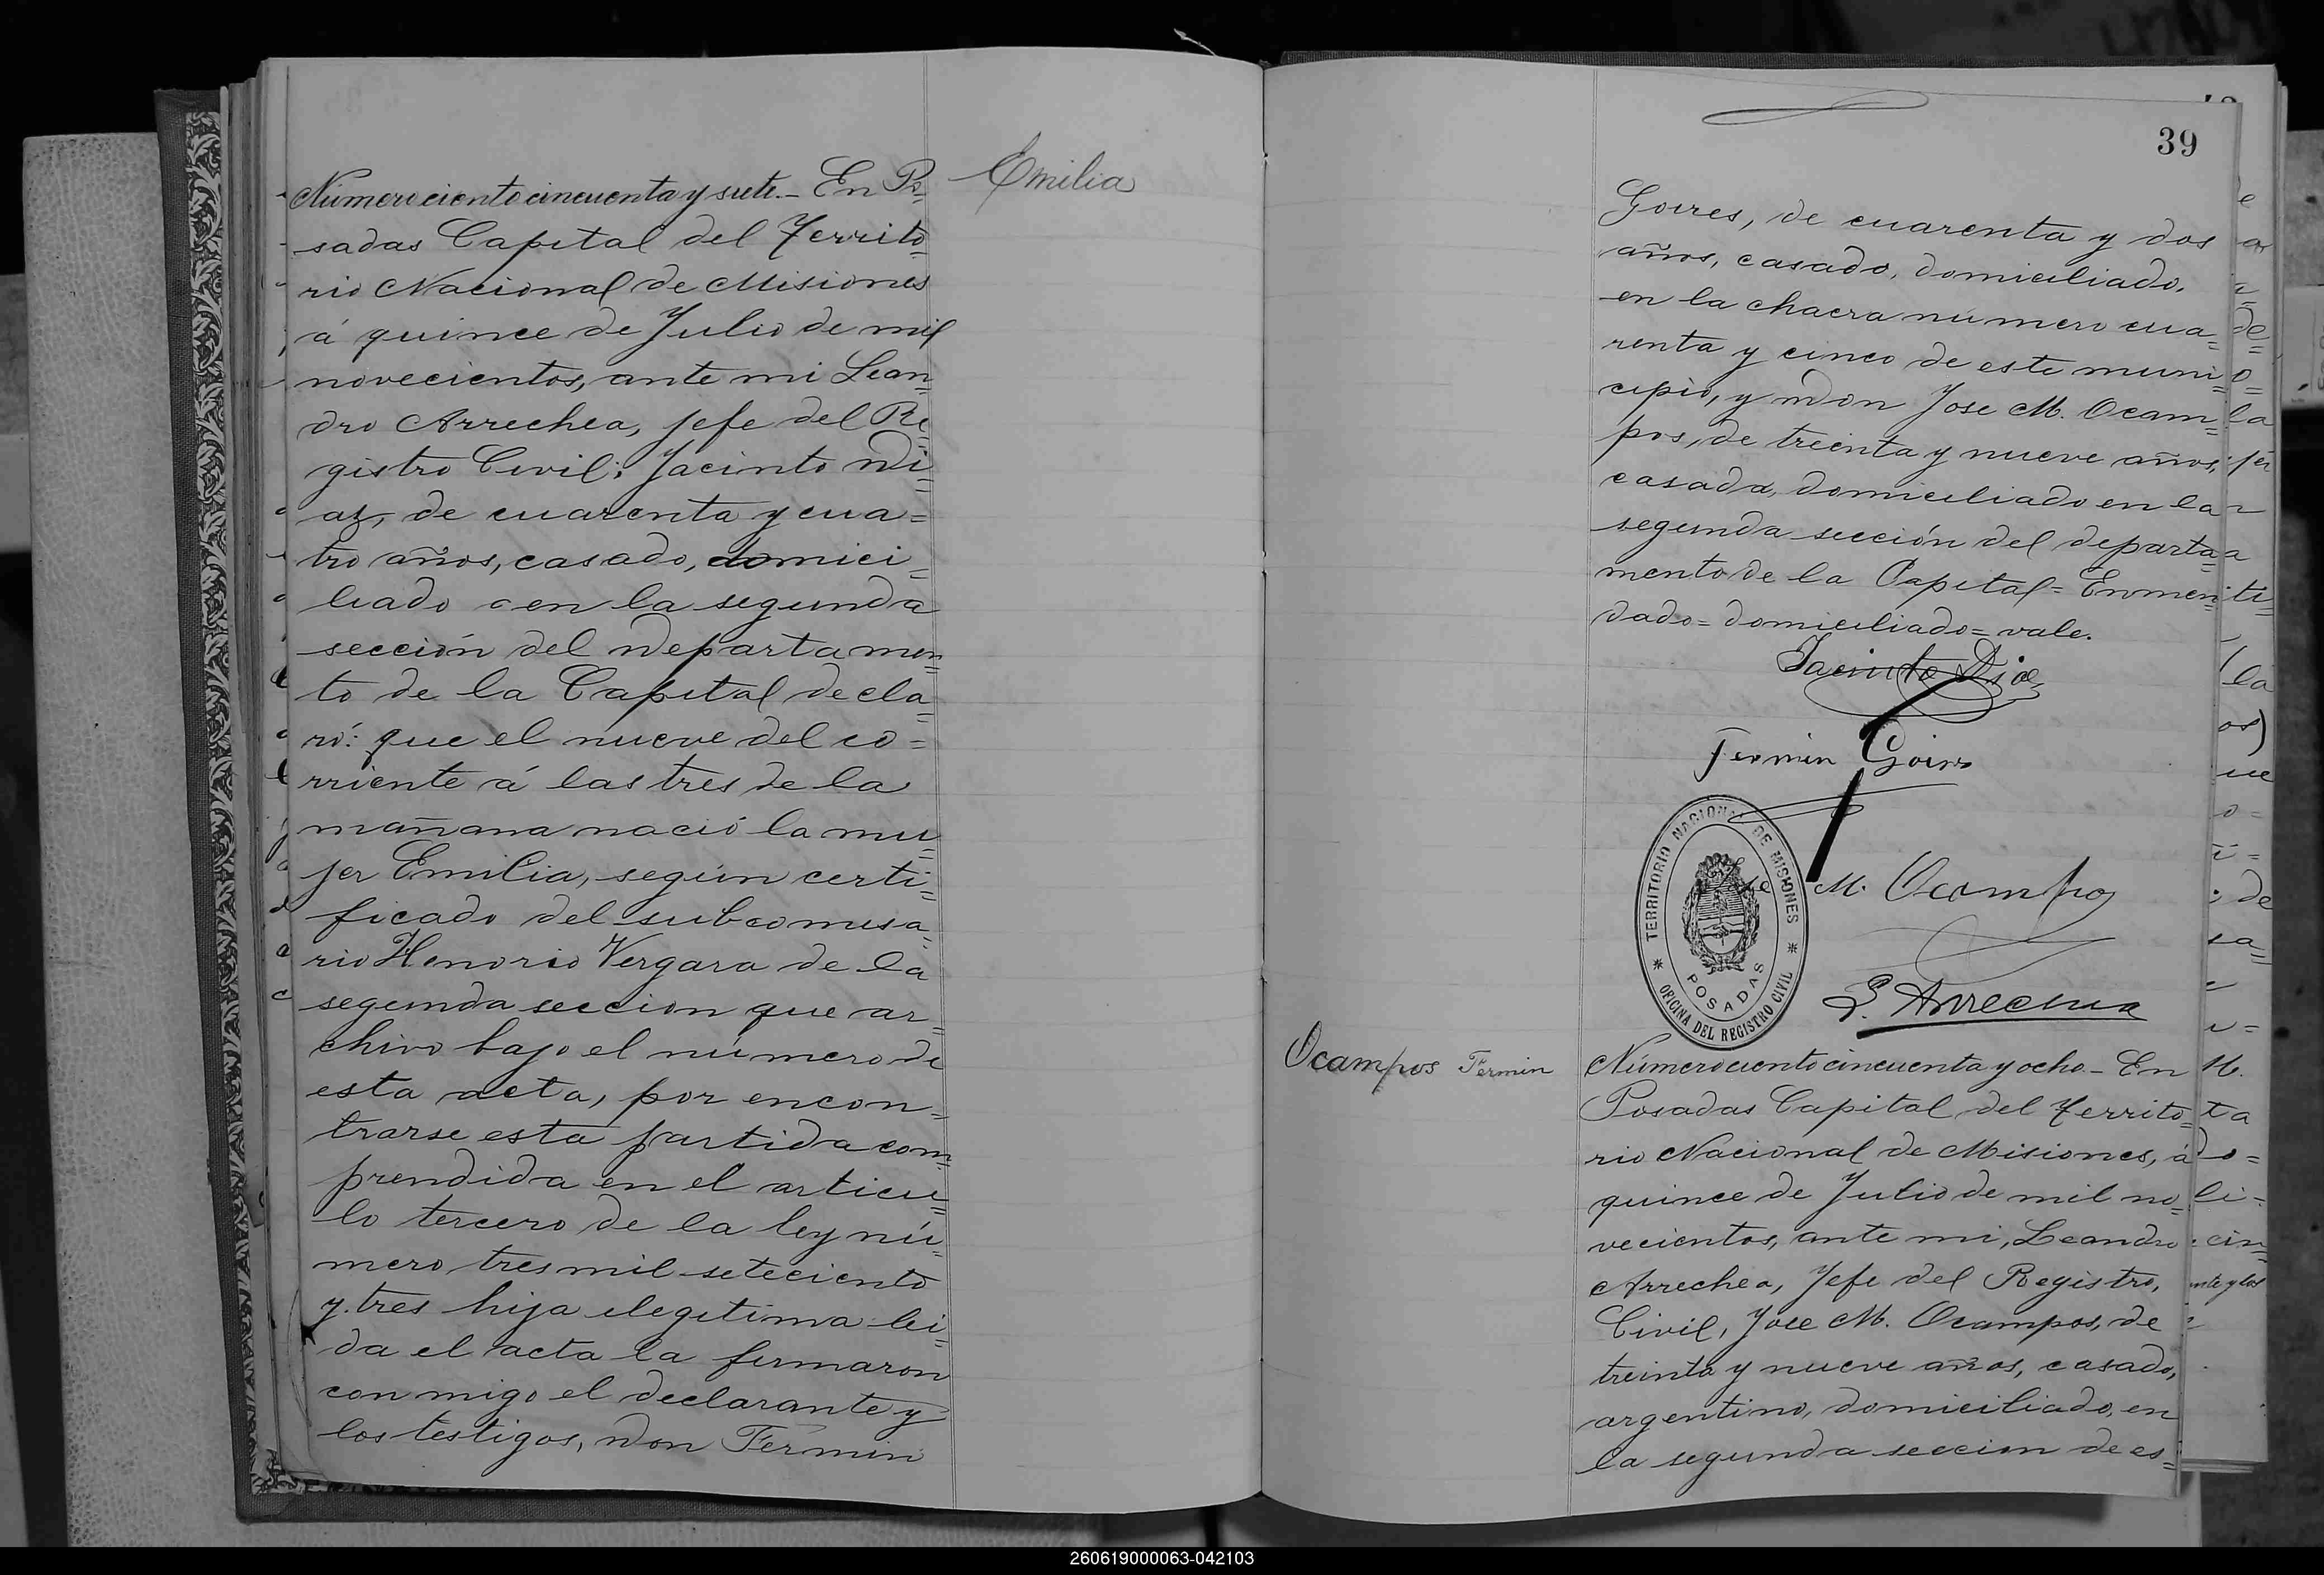 Emilia
Número ciento cincuenta y siete.- En Po=
sadas Capital del Territo=
rio Nacional de Misiones
á quince de Julio de mil
novecientos, ante mi Lean=
dro Arrechea, Jefe del Re=
gistro Civil; Jacinto Di=
az, de cuarenta y cua=
tro años, casado, domici=
liado en la segunda
sección del Departamen=
to de la Capital decla=
ró: que el nueve del co=
rriente á las tres de la
mañana nació la mu=
jer Emilia, según certi=
ficado del subcomisa=
rio Honorio Vergara de la
segunda seccion que ar=
chivo bajo el número de
esta acta, por encon=
trarse esta partida com=
prendida en el articu=
lo tercero de la ley nú=
mero tres mil seteciento
y tres hija ilegitima lei=
da el acta la firmaron
con migo el declarante y
los testigos, Don Fermin
39
Goires, de cuarenta y dos
años, casado, domiciliado,
en la chacra número cua=
renta y cinco de este muni=
cipio, y Don Jose M. Ocam=
pos, de treinta y nueve años,
casado, domiciliado en la
segunda sección del departa=
mento de la Capital= Enmen=
dado= domiciliado= vale.
Jacinto Diaz
Fermin Goires
M. Ocampos
L. Arrechea
TERRITORIO NACIONAL DE MISIONES
POSADAS
* OFICINA DEL REGISTRO CIVIL *
Ocampos Fermin
Número ciento cincuenta y ocho.- En
Posadas Capital del Territo=
rio Nacional de Misiones, á
quince de Julio de mil no=
vecientos, ante mi, Leandro
Arrechea, Jefe del Registro,
Civil, Jose M. Ocampos, de
treinta y nueve años, casado,
argentino, domiciliado, en
la segunda seccion de es=
260619000063-042103